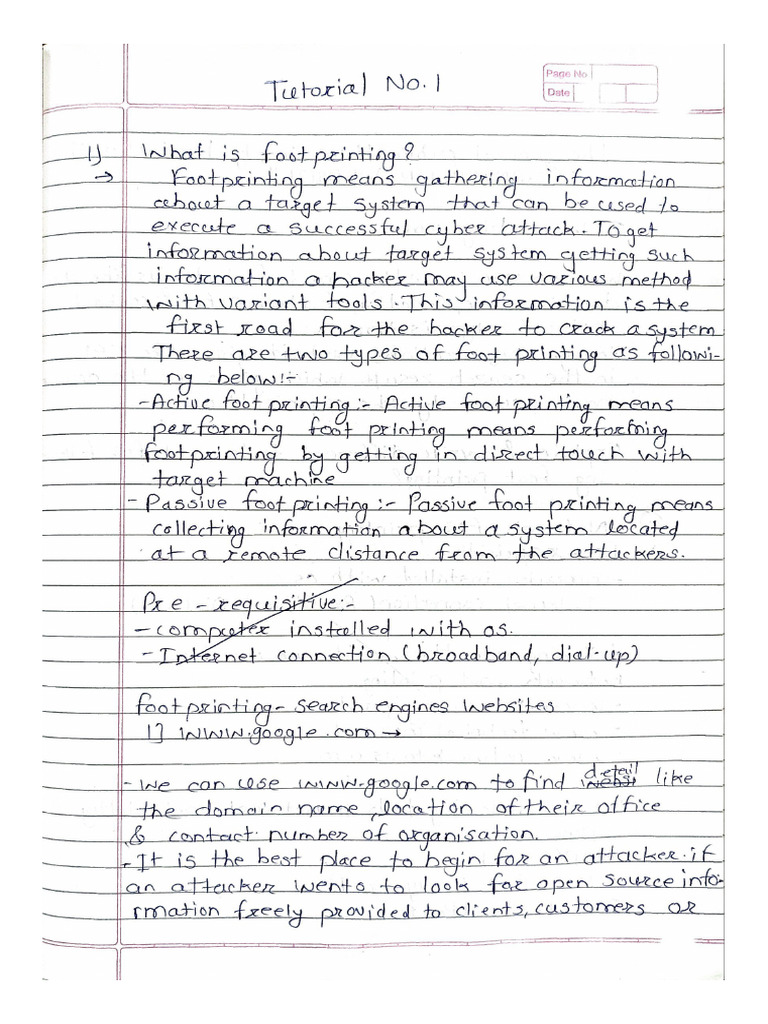 Tutorial No. 1
Page No.
Date
1) What is footprinting?
→ Footprinting means gathering information
about a target system that can be used to
execute a successful cyber attack. To get
information about target system getting such
information a hacker may use various method
with variant tools. This information is the
first road for the hacker to crack a system
There are two types of foot printing as followi-
ng below:-
- Active foot printing:- Active foot printing means
performing foot printing means performing
footprinting by getting in direct touch with
target machine
- Passive footprinting:- Passive foot printing means
collecting information about a system located
at a remote distance from the attackers.
Pre-requisitive:-
- computer installed with os.
- Internet connection (broadband, dial-up)
footprinting- search engines websites
1] www.google.com →
- we can use www.google.com to find detail like
the domain name, location of their office
& contact number of organisation.
- It is the best place to begin for an attacker. if
an attacker wents to look for open source info-
rmation freely provided to clients, customers or